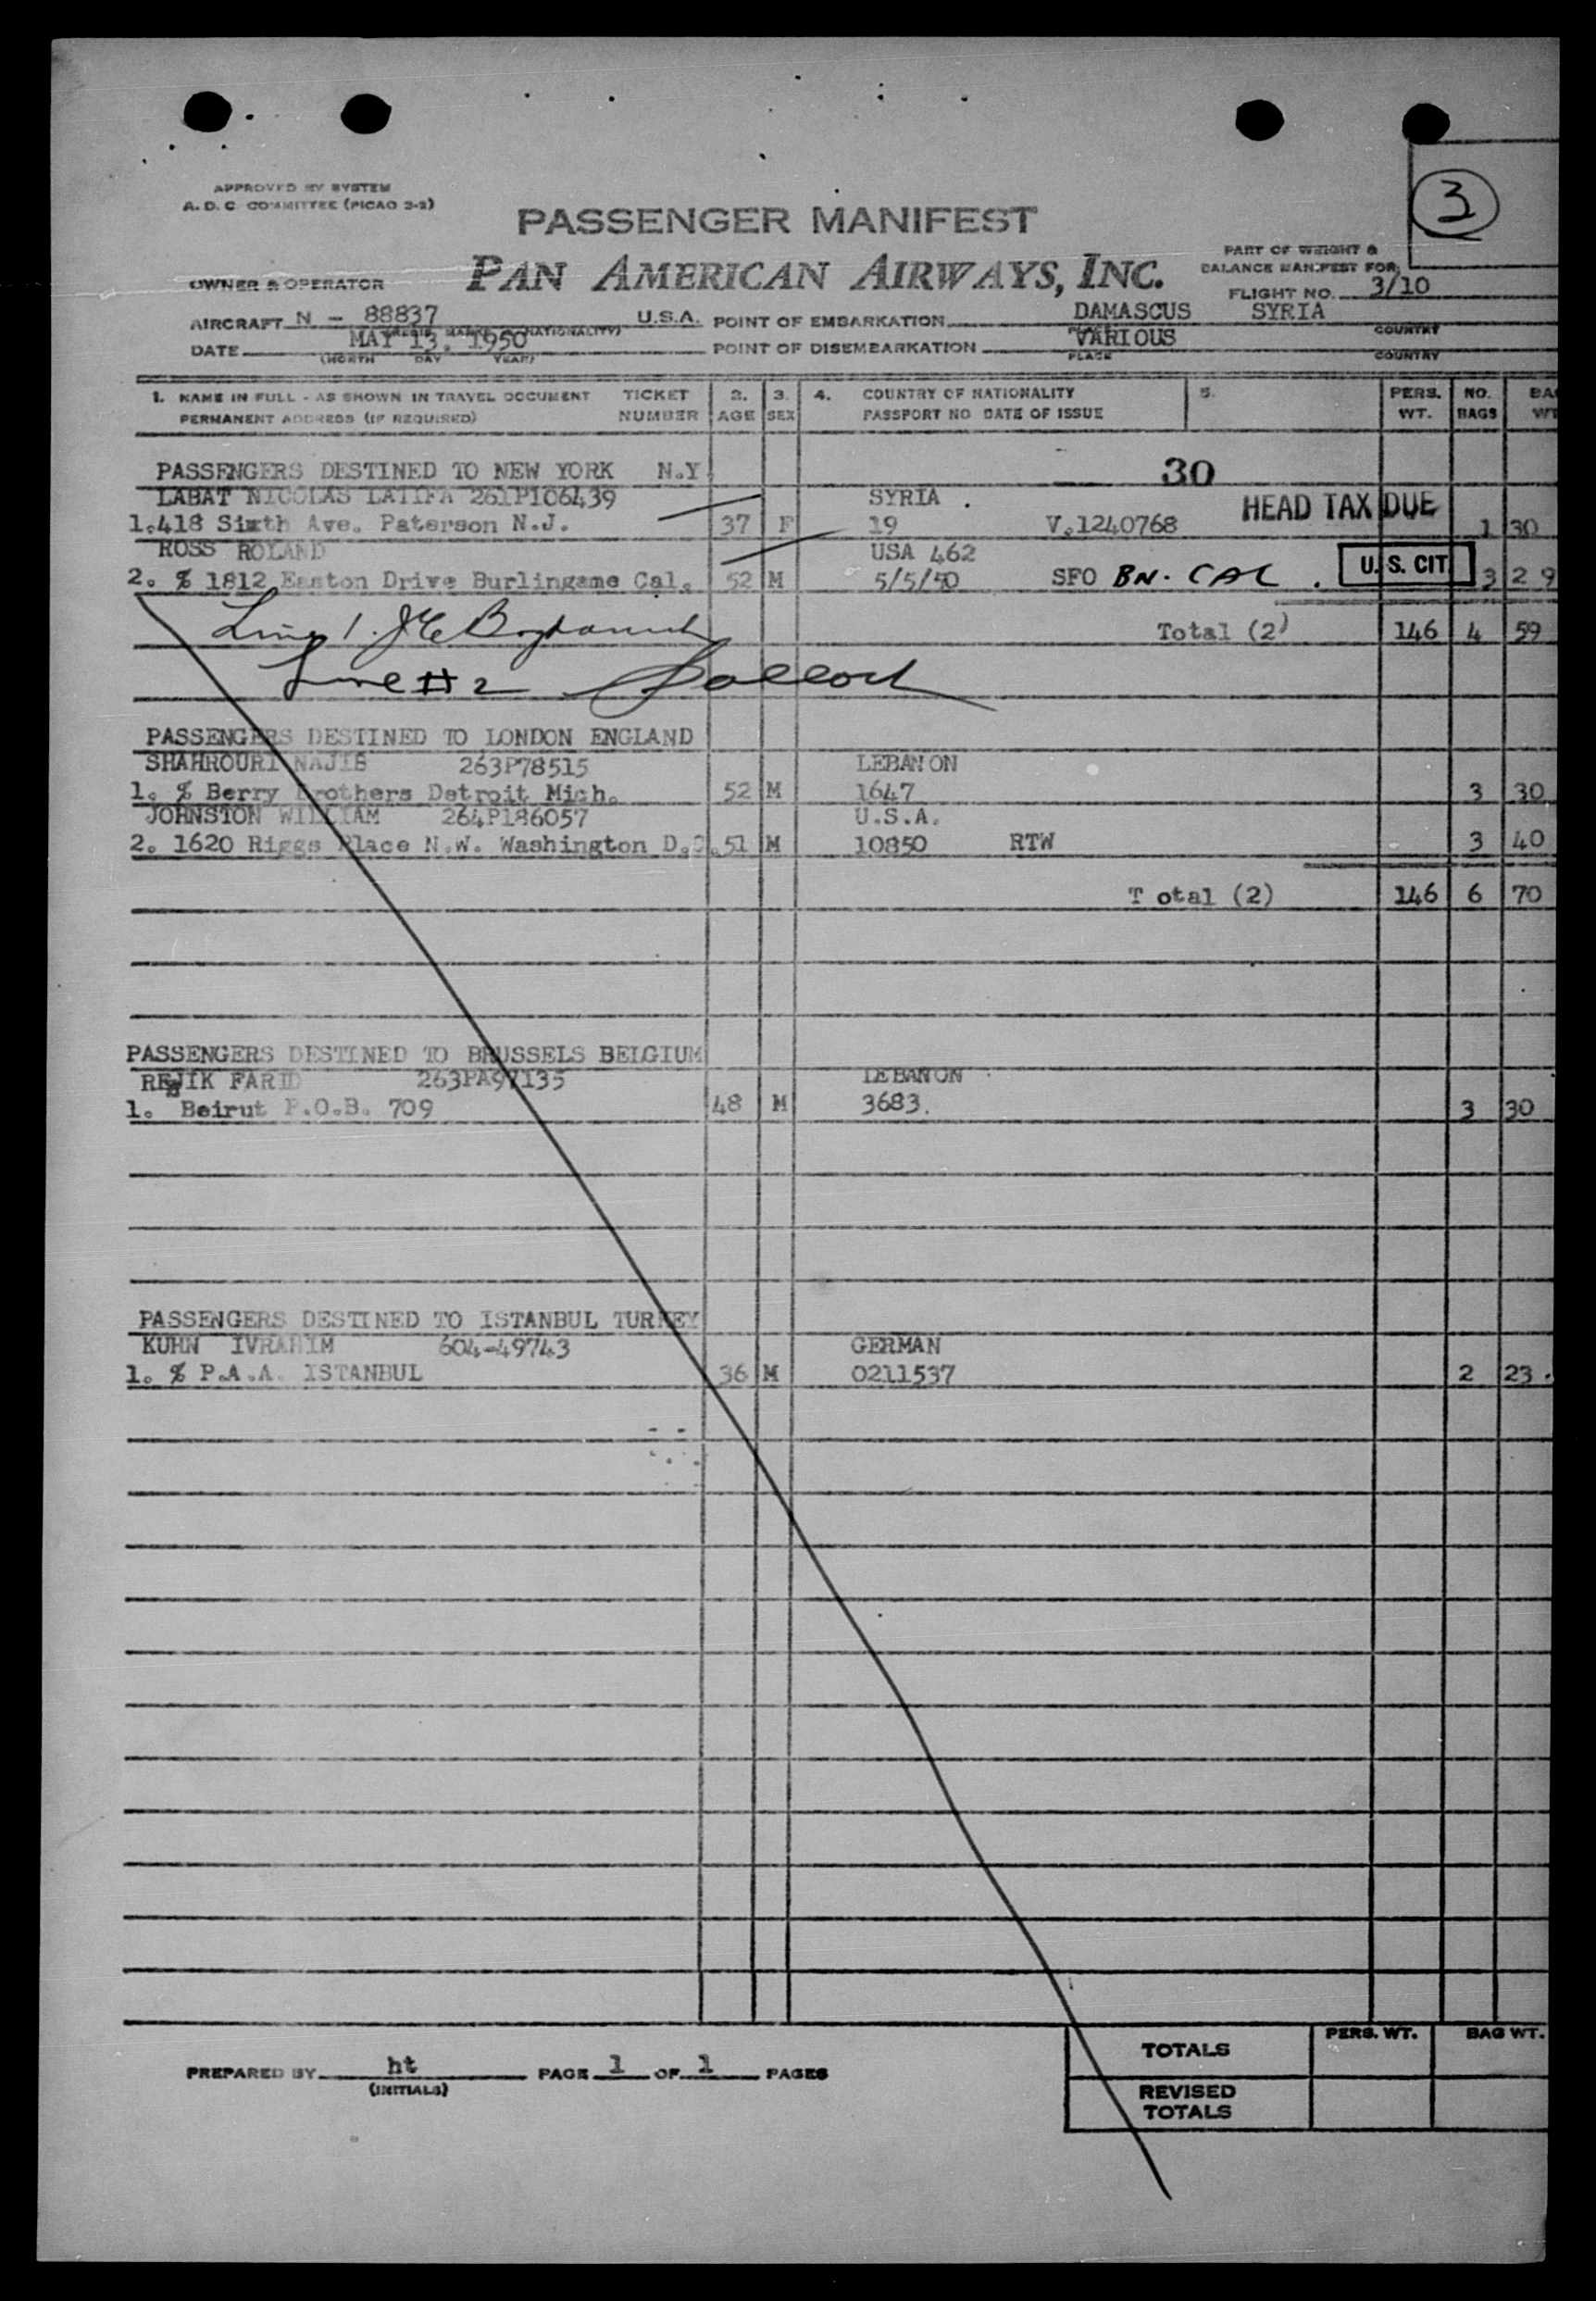 3
APPROVED BY SYSTEM
A. D. C COMMITTEE (PICAO 2-2)
PASSENGER MANIFEST
PAN AMERICAN AIRWAYS, INC.
PART OF WEIGHT &
BALANCE MANIFEST FOR
OWNER & OPERATOR
FLIGHT NO. 3/10
AIRCRAFT N - 88837 U.S.A. POINT OF EMBARKATION DAMASCUS SYRIA
DATE MAY 13, 1950 POINT OF DISEMBARKATION VARIOUS
(MONTH DAY YEAR) PLACE COUNTRY
1. NAME IN FULL - AS SHOWN IN TRAVEL DOCUMENT TICKET 2. 3. 4. COUNTRY OF NATIONALITY 5. PERS. NO.
PERMANENT ADDRESS (IF REQUIRED) NUMBER AGE SEX PASSPORT NO DATE OF ISSUE WT. BAGS WT
PASSENGERS DESTINED TO NEW YORK N.Y 30
LABAT NICOLAS LATIFA 261P106439 SYRIA . HEAD TAX DUE
1.418 Sixth Ave. Paterson N.J. 37 F 19 V.1240768 1 30
ROSS ROLAND USA 462
2. % 1812 Easton Drive Burlingame Cal. 52 M 5/5/50 SFO BN. CAL . U.S. CIT 3 2 9
Line 1. Total (2) 146 4 59
Line #2
PASSENGERS DESTINED TO LONDON ENGLAND
SHAHROURI NAJIB 263P78515 LEBANON
1. % Berry Brothers Detroit Mich. 52 M 1647 3 30
JOHNSTON WILLIAM 264P186057 U.S.A.
2. 1620 Riggs Place N.W. Washington D.C. 51 M 10850 RTW 3 40
T otal (2) 146 6 70
PASSENGERS DESTINED TO BRUSSELS BELGIUM
FARID 263PA97135 LEBANON
1. Beirut P.O.B. 709 48 M 3683. 3 30
PASSENGERS DESTINED TO ISTANBUL TURKEY
KUHN IVRAHIM 604-49743 GERMAN
1. % P.A.A. ISTANBUL 36 M 0211537 2 23.
PERS. WT. BAG WT.
TOTALS
PREPARED BY ht PAGE 1 OF 1 PAGES
(INITIALS)
REVISED
TOTALS